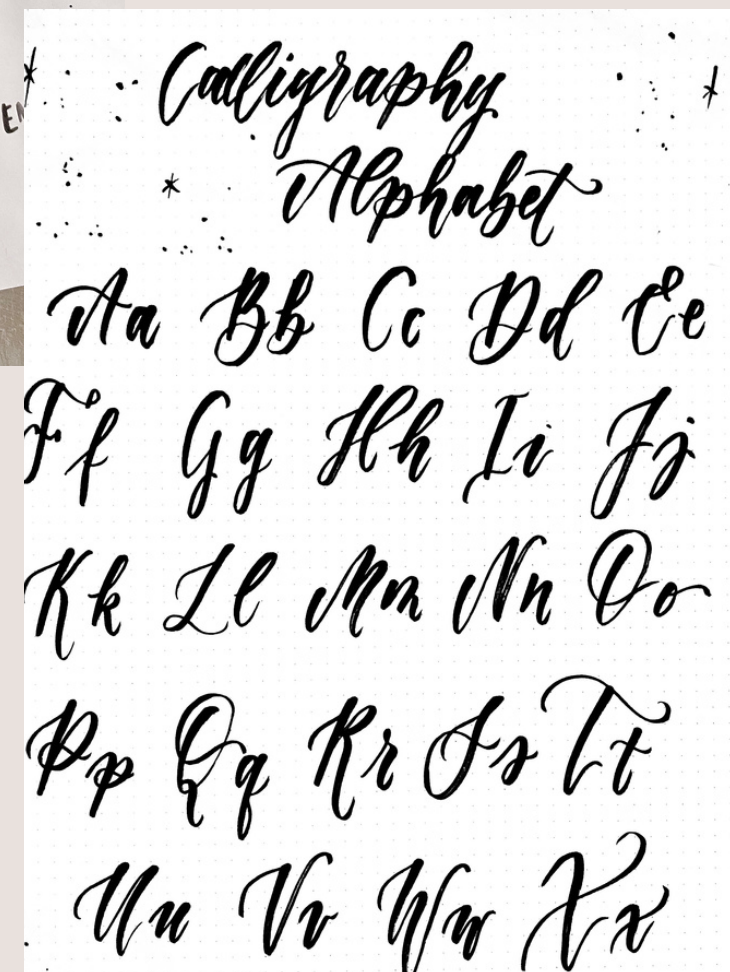 Calligraphy
Alphabet
Aa Bb Cc Dd Ee
Ff Gg Hh Ii Jj
Kk Ll Mm Nn Oo
Pp Qq Rr Ss Tt
Uu Vv Ww Xx